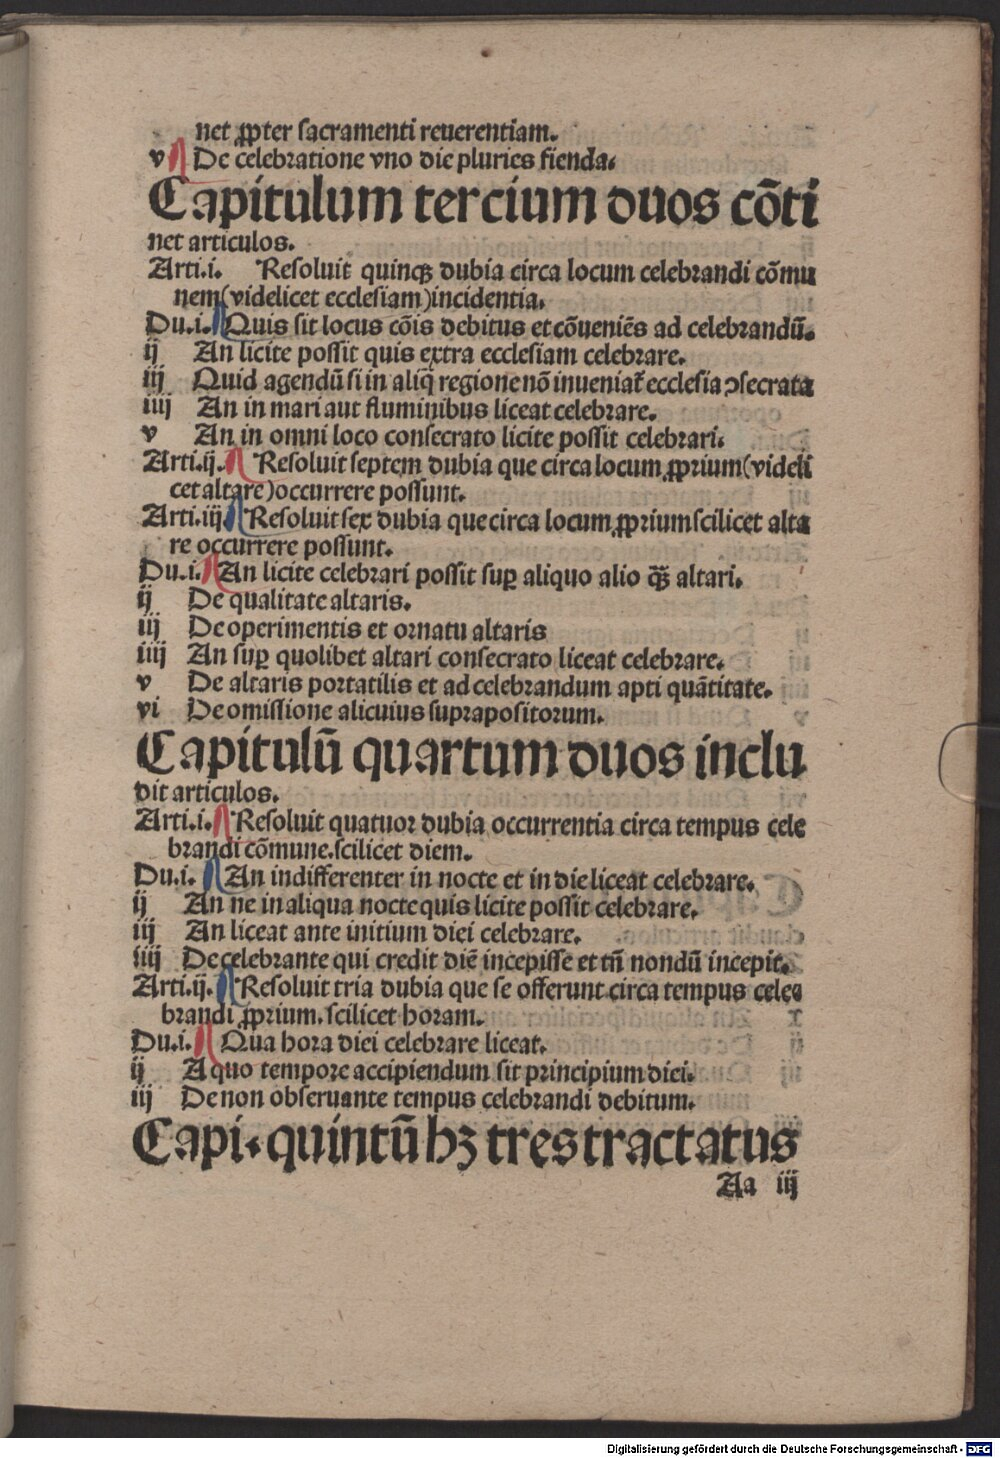 net ꝓpter sacramenti reuerentiam.
v De celebratione vno die pluries fienda.
Capitulum tercium duos cōti
net articulos.
Arti.i. Resoluit quinqȝ dubia circa locum celebrandi cōmu
nem(videlicet ecclesiam)incidentia.
Du.i. Quis sit locus cōis debitus et cōueniēs ad celebrandū.
ij An licite possit quis extra ecclesiam celebrare.
iij Quid agendū si in aliq̄ regione nō inueniat᷑ ecclesia ↄsecrata
iiij An in mari aut fluminibus liceat celebrare.
v An in omni loco consecrato licite possit celebrari.
Arti.ij. Resoluit septem dubia que circa locum ꝓprium(videli
cet altare)occurrere possunt.
Arti.iij. Resoluit sex dubia que circa locum ꝓprium scilicet alta
re occurrere possunt.
Du.i. An licite celebrari possit suꝑ aliquo alio qȝ̄ altari.
ij De qualitate altaris.
iij De operimentis et ornatu altaris
iiij An suꝑ quolibet altari consecrato liceat celebrare.
v De altaris portatilis et ad celebrandum apti quātitate.
vi De omissione alicuius suprapositorum.
Capitulū quartum duos inclu
dit articulos.
Arti.i. Resoluit quatuor dubia occurrentia circa tempus cele
brandi cōmune.scilicet diem.
Du.i. An indifferenter in nocte et in die liceat celebrare.
ij An ne in aliqua nocte quis licite possit celebrare.
iij An liceat ante initium diei celebrare.
iiij De celebrante qui credit diē incepisse et tn̄ nondū incepit.
Arti.ij. Resoluit tria dubia que se offerunt circa tempus cele
brandi ꝓprium.scilicet horam.
Du.i. Qua hora diei celebrare liceat.
ij A quo tempore accipiendum sit principium diei.
iij De non obseruante tempus celebrandi debitum.
Capi. quintū hȝ tres tractatus
Aa iij
Digitalisierung gefördert durch die Deutsche Forschungsgemeinschaft - DFG